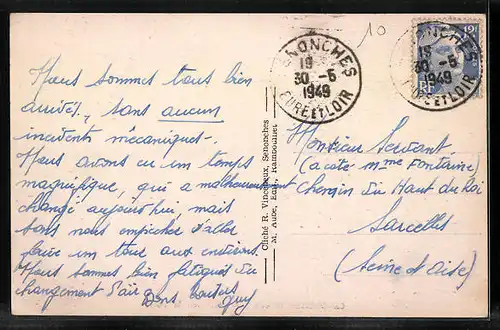 10
SENONCHES
18
30-5
1949
EURE ET LOIR
SENONCHES
18
30-5
1949
EURE ET LOIR
12F
RF
Nous sommes tous bien
arrivés, sans aucun
incidents mécaniques.
Nous avons eu un temps
magnifique, qui a malheureusement
changé aujourd'hui, mais
sans nous empêcher d'aller
faire un tour aux environs.
Nous sommes bien fatigués du
changement d'air
Bons baisers
Guy
Cliché R. Vincereux, Senonches
M. Aube, Edit., Rambouillet
Monsieur Servant
(a coté mme Fontaine)
Chemin du Haut du Roi
Sarcelles
(Seine et Oise)